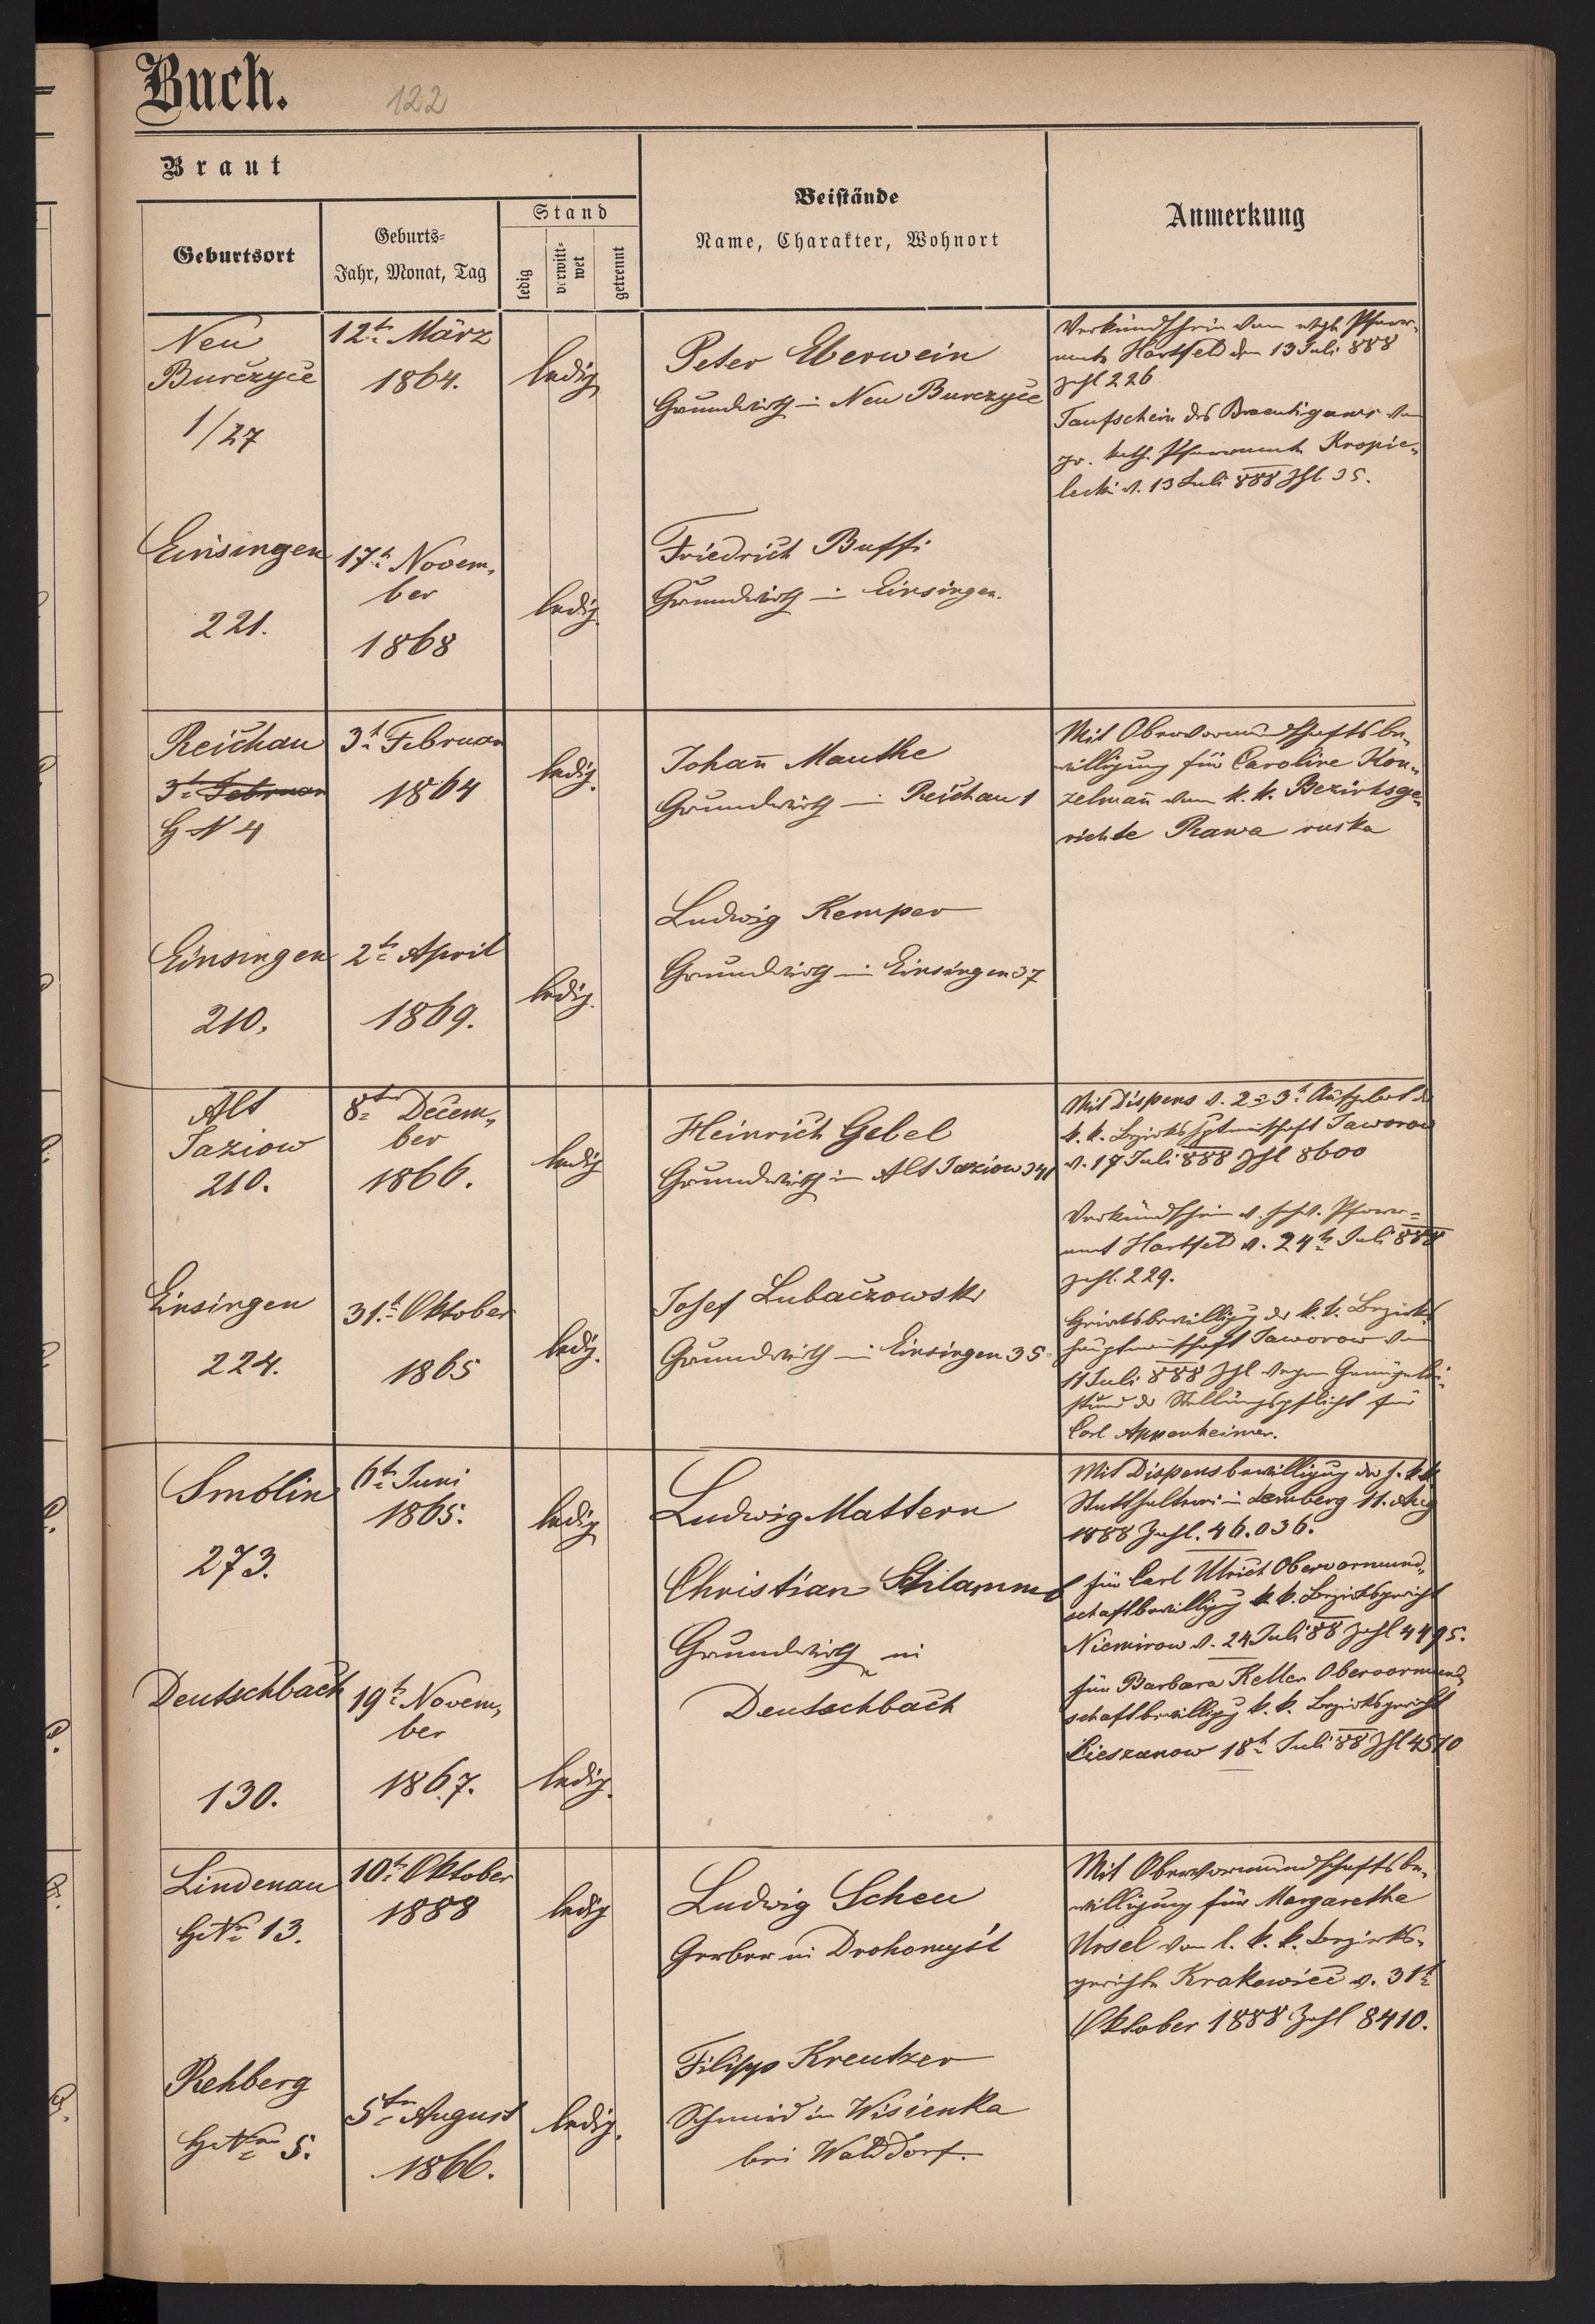 Buch.
122
Braut
Geburtsort
Geburts-
Jahr, Monat, Tag
Stand
ledig
verwitt-
wet
getrennt
Beistände
Name, Charakter, Wohnort
Anmerkung
Neu
Burczyce
1/27
12t März
1864.
ledig
Peter Eberwein
Grundwirth in Neu Burczyce
Verkündschein vom evgl. Pfarr-
amte Hartfeld den 13 Juli 888
Zahl 226
Taufschein des Braeutigams vom
gr. kath. Pfarramte Kropie-
lecki v. 13 Juli 888 Zhl 35.
Einsingen
221.
17t Novem-
ber
1868
ledig
Friedrich Buffi
Grundwirth in Einsingen.
Reichau
3t Februar
H N 4
3t Februar
1864
ledig.
Johan̄ Manthe
Grundwirth in Reichau 1
Mit Obervormundschaftsbe-
willigung für Caroline Kon-
zelman̄ vom k. k. Bezirksge-
richte Rawa ruska
Einsingen
210.
2t April
1869.
ledig.
Ludwig Kemper
Grundwirth in Einsingen 37
Alt
Jaziow
210.
8ter Decem-
ber
1866.
ledig
Heinrich Gebel
Grundwirth in Alt Jaziow 341
Mit Dispens v. 2 & 3t Aufgebot der
k. k. Bezirkshptmschaft Jaworow
v. 17 Juli 888 Zhl 8600
Verkündschein v. Pfarr-
amt Hartfeld v. 24t Juli 888
Zahl. 229.
Einsingen
224.
31t Oktober
1865
ledig.
Josef Lubaczowski
Grundwirth in Einsingen 35
Heiratsbewilligung der k. k. Bezirks
hauptmanschaft Jaworow vom
11 Juli 888 Zhl wegen
der Stellungspflicht für
Carl Appenheimer.
Smolin
273.
6t Juni
1865.
ledig
Ludwig Mattern
Christian Schlamme
Grundwirth in
Deutschbach
Mit Dispensbewilligung der h. k. k.
Statthalterei in Lemberg 11. Aug
1888 Zahl. 46.036.
für Carl Ulrich Obervormund-
schaftbewilligung k. k. Bezirksgericht
Niemirow v. 24 Juli 88 Zahl 4495.
für Barbara Keller Obervormund-
schaftbewilligung k. k. Bezirksgericht
Cieszanow 18t Juli 88 Zhl 4570
Deutschbach
130.
19t Novem-
ber
1867.
ledig.
Lindenau
HNr 13.
10t Oktober
1888
ledig
Ludwig Scheu
Gerber in Drohomyśl
Mit Obervormundschaftsbe-
willigung für Margaretha
Ursel vom l. k. k. Bezirks-
gerichte Krakowiec v. 31t
Oktober 1888 Zahl 8410.
Rehberg
HNro 5.
5ten August
1866.
ledig.
Filipp Kreutzer
Schmied in Wisienka
bei Walddorf.